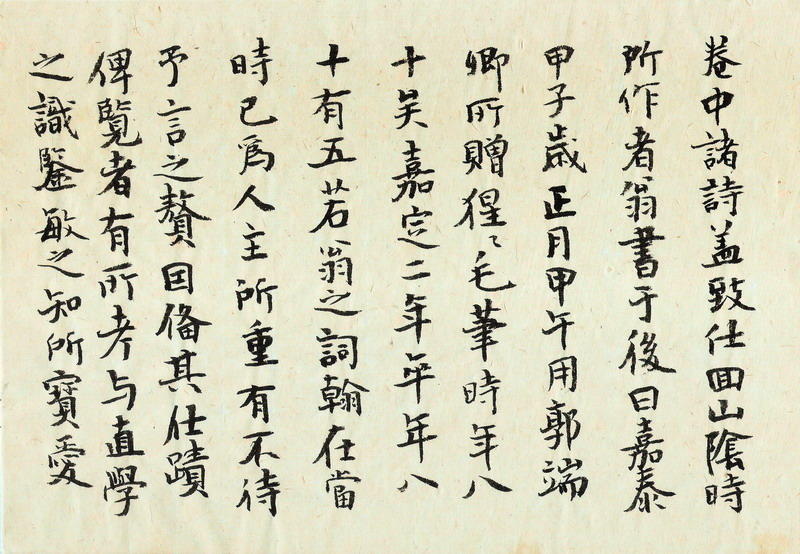 卷中諸詩盖致仕回山陰時
所作者翁書于後曰嘉泰
甲子歳正月甲午用郭端
卿所贈猩〻毛筆時年八
十矣嘉定二年卒年八
十有五若翁之詞翰在當
時已爲人主所重有不待
予言之贅因俻其仕蹟
俾覧者有所考与直學
之識鑒敏之知所寳愛